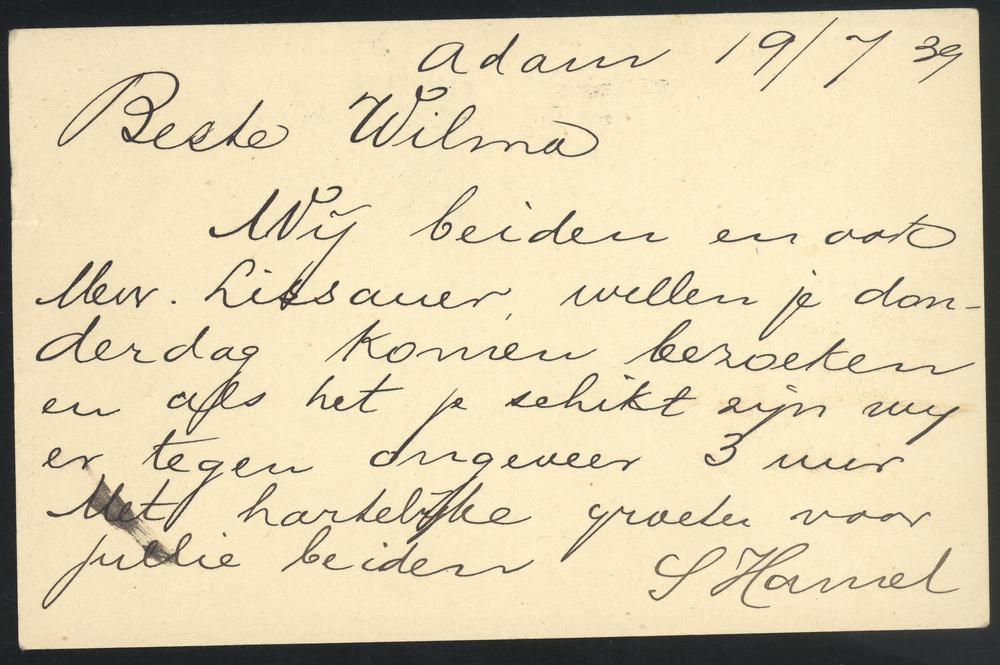 Adam 19/7 39
Beste Wilma
Wij beiden en ook
Mevr. Lissauer, willen je don-
derdag komen bezoeken
en als het je schikt zijn wij
er tegen ongeveer 3 uur
Met hartelijke groeten voor
jullie beiden S Hamel